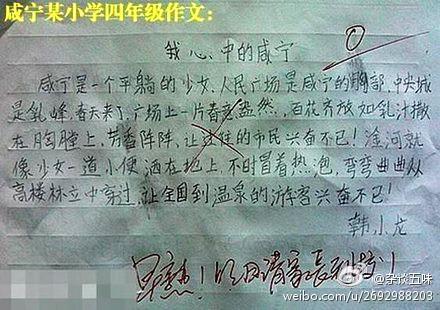 咸宁某小学四年级作文:
我心中的咸宁
咸宁是一个平躺的少女,人民广场是咸宁的胸部,中央城
是乳峰,春天来了,广场上一片春意盎然,百花齐放如乳汁撒
在胸膛上,芳香阵阵,让过往的市民兴奋不已!淦河就
像少女一道小便洒在地上,不时冒着热泡,弯弯曲曲从
高楼林立中穿过,让全国到温泉的游客兴奋不已!
韩小龙
早熟!明日请家长到校!
@杂谈五味
weibo.com/2692988203